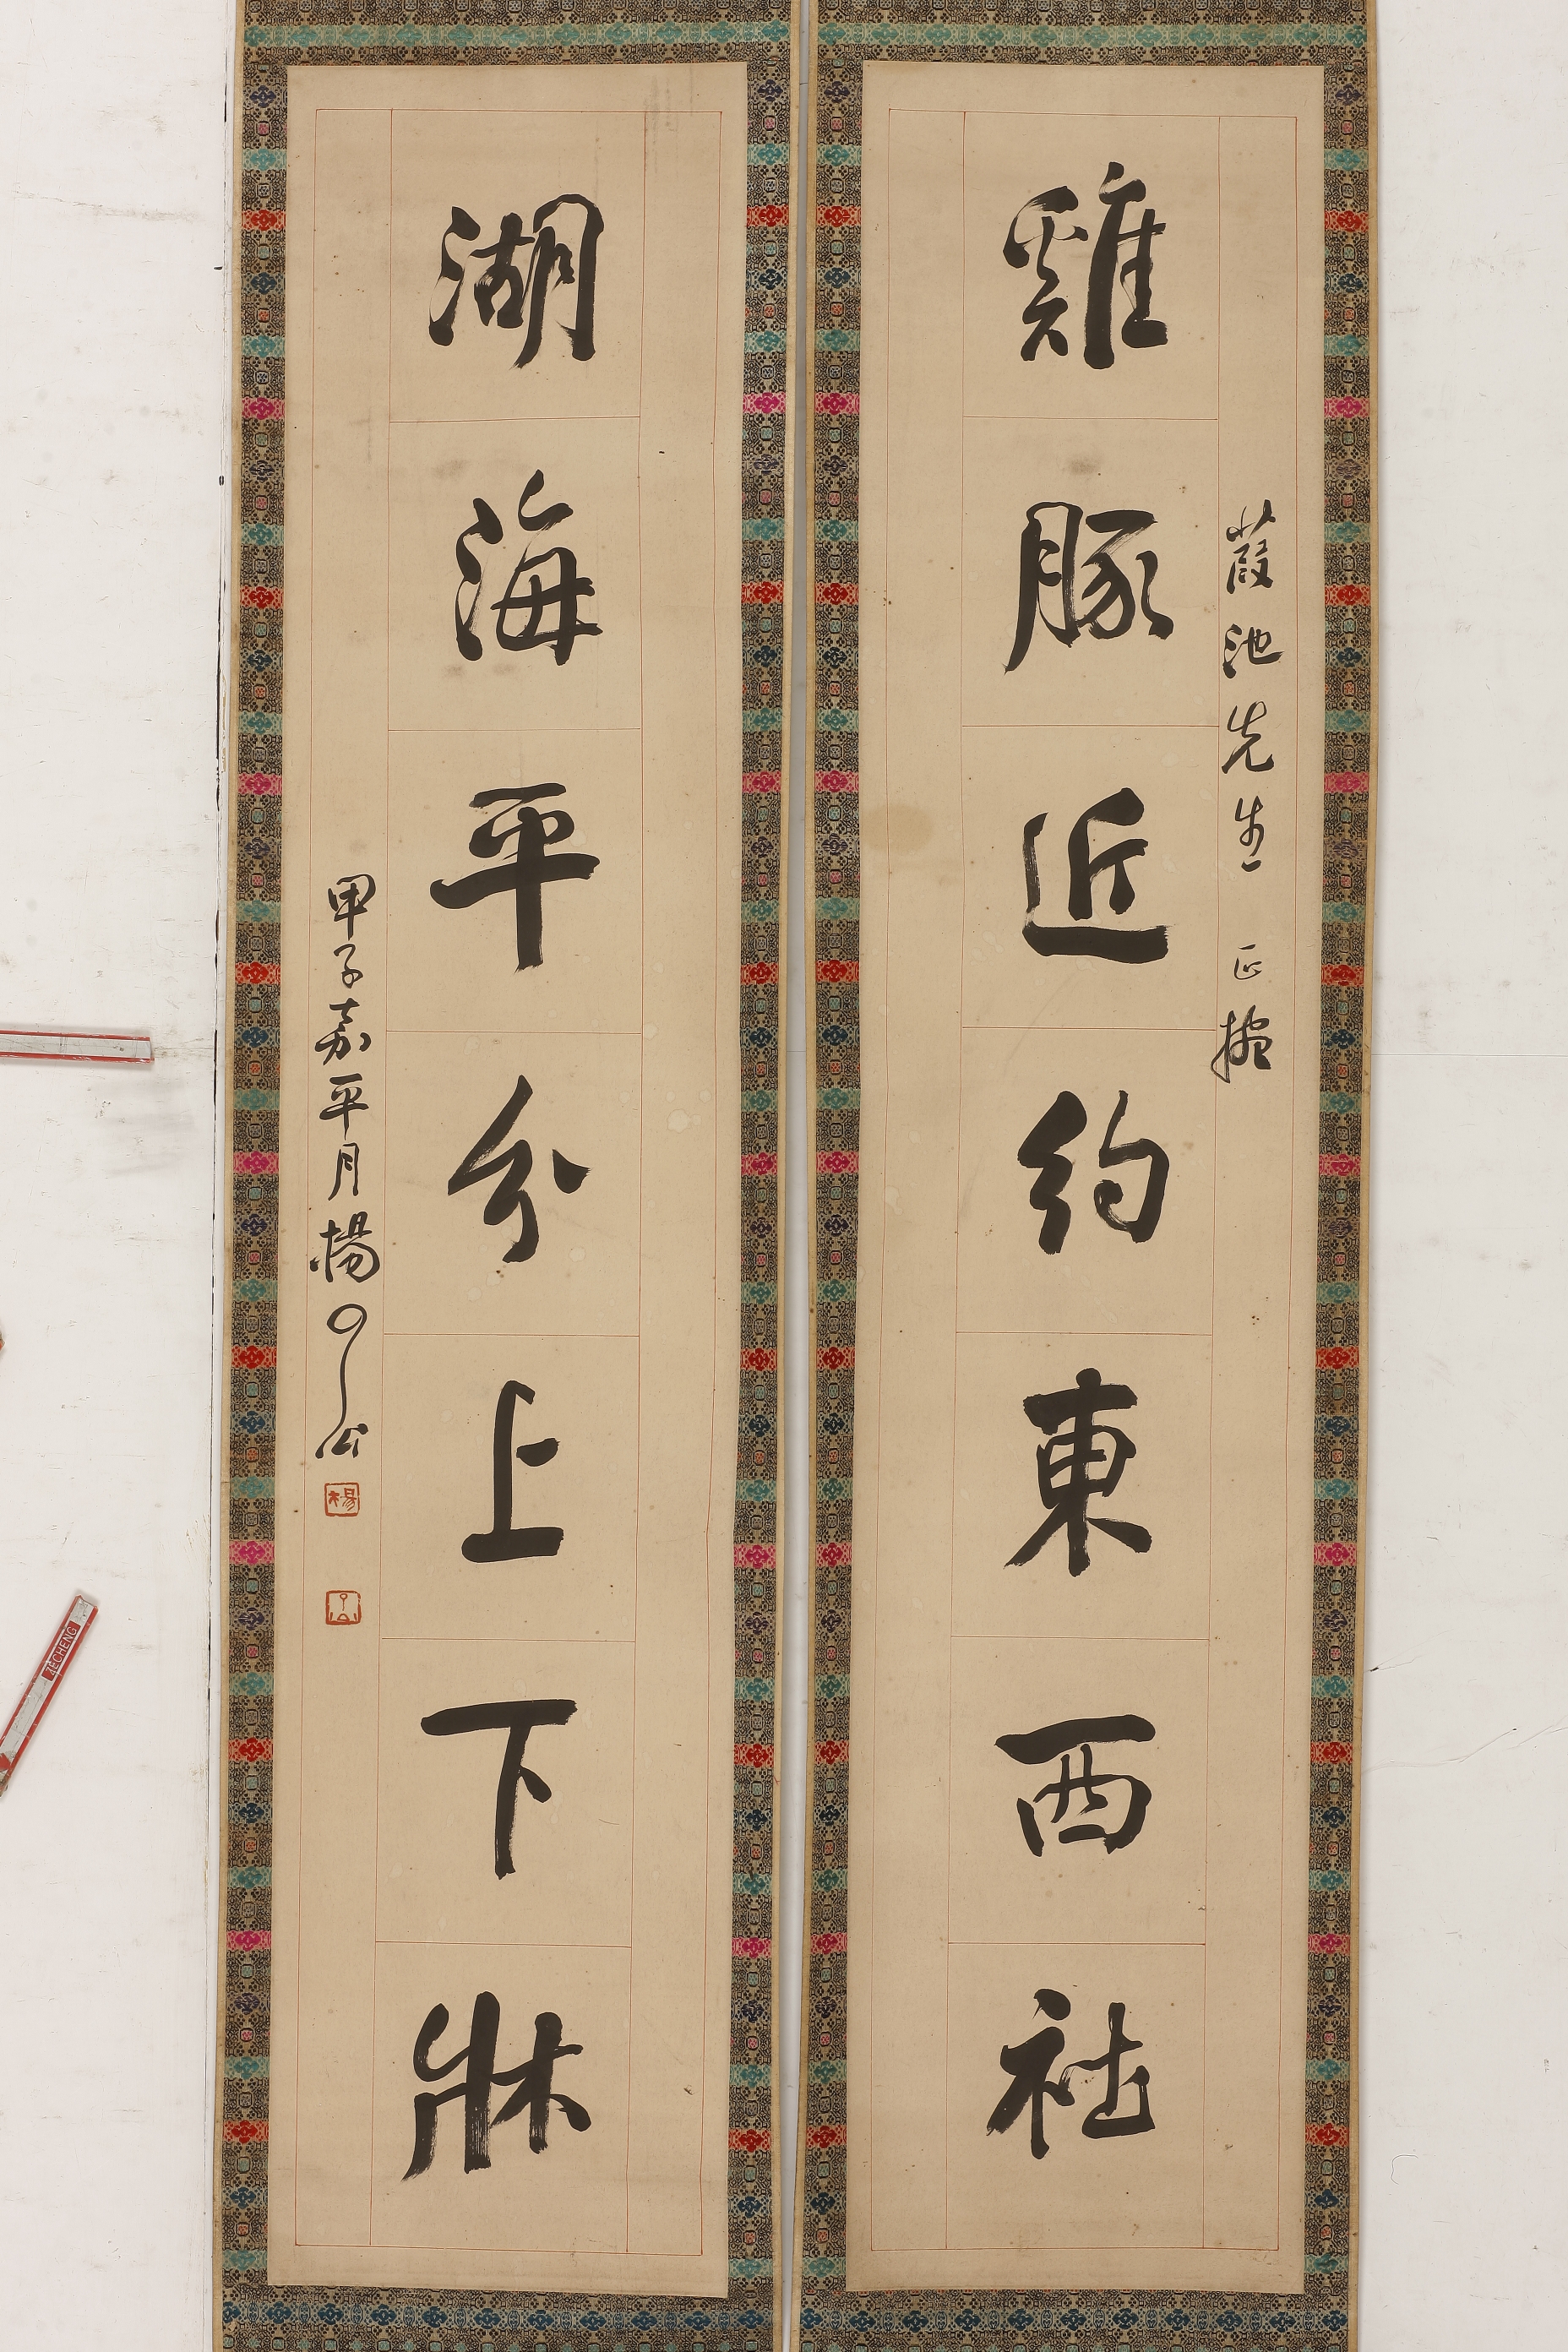 雞豚近約東西社
葭池先生 正搖
湖海平分上下牀
甲子嘉平月楊公
楊
ZECHENG